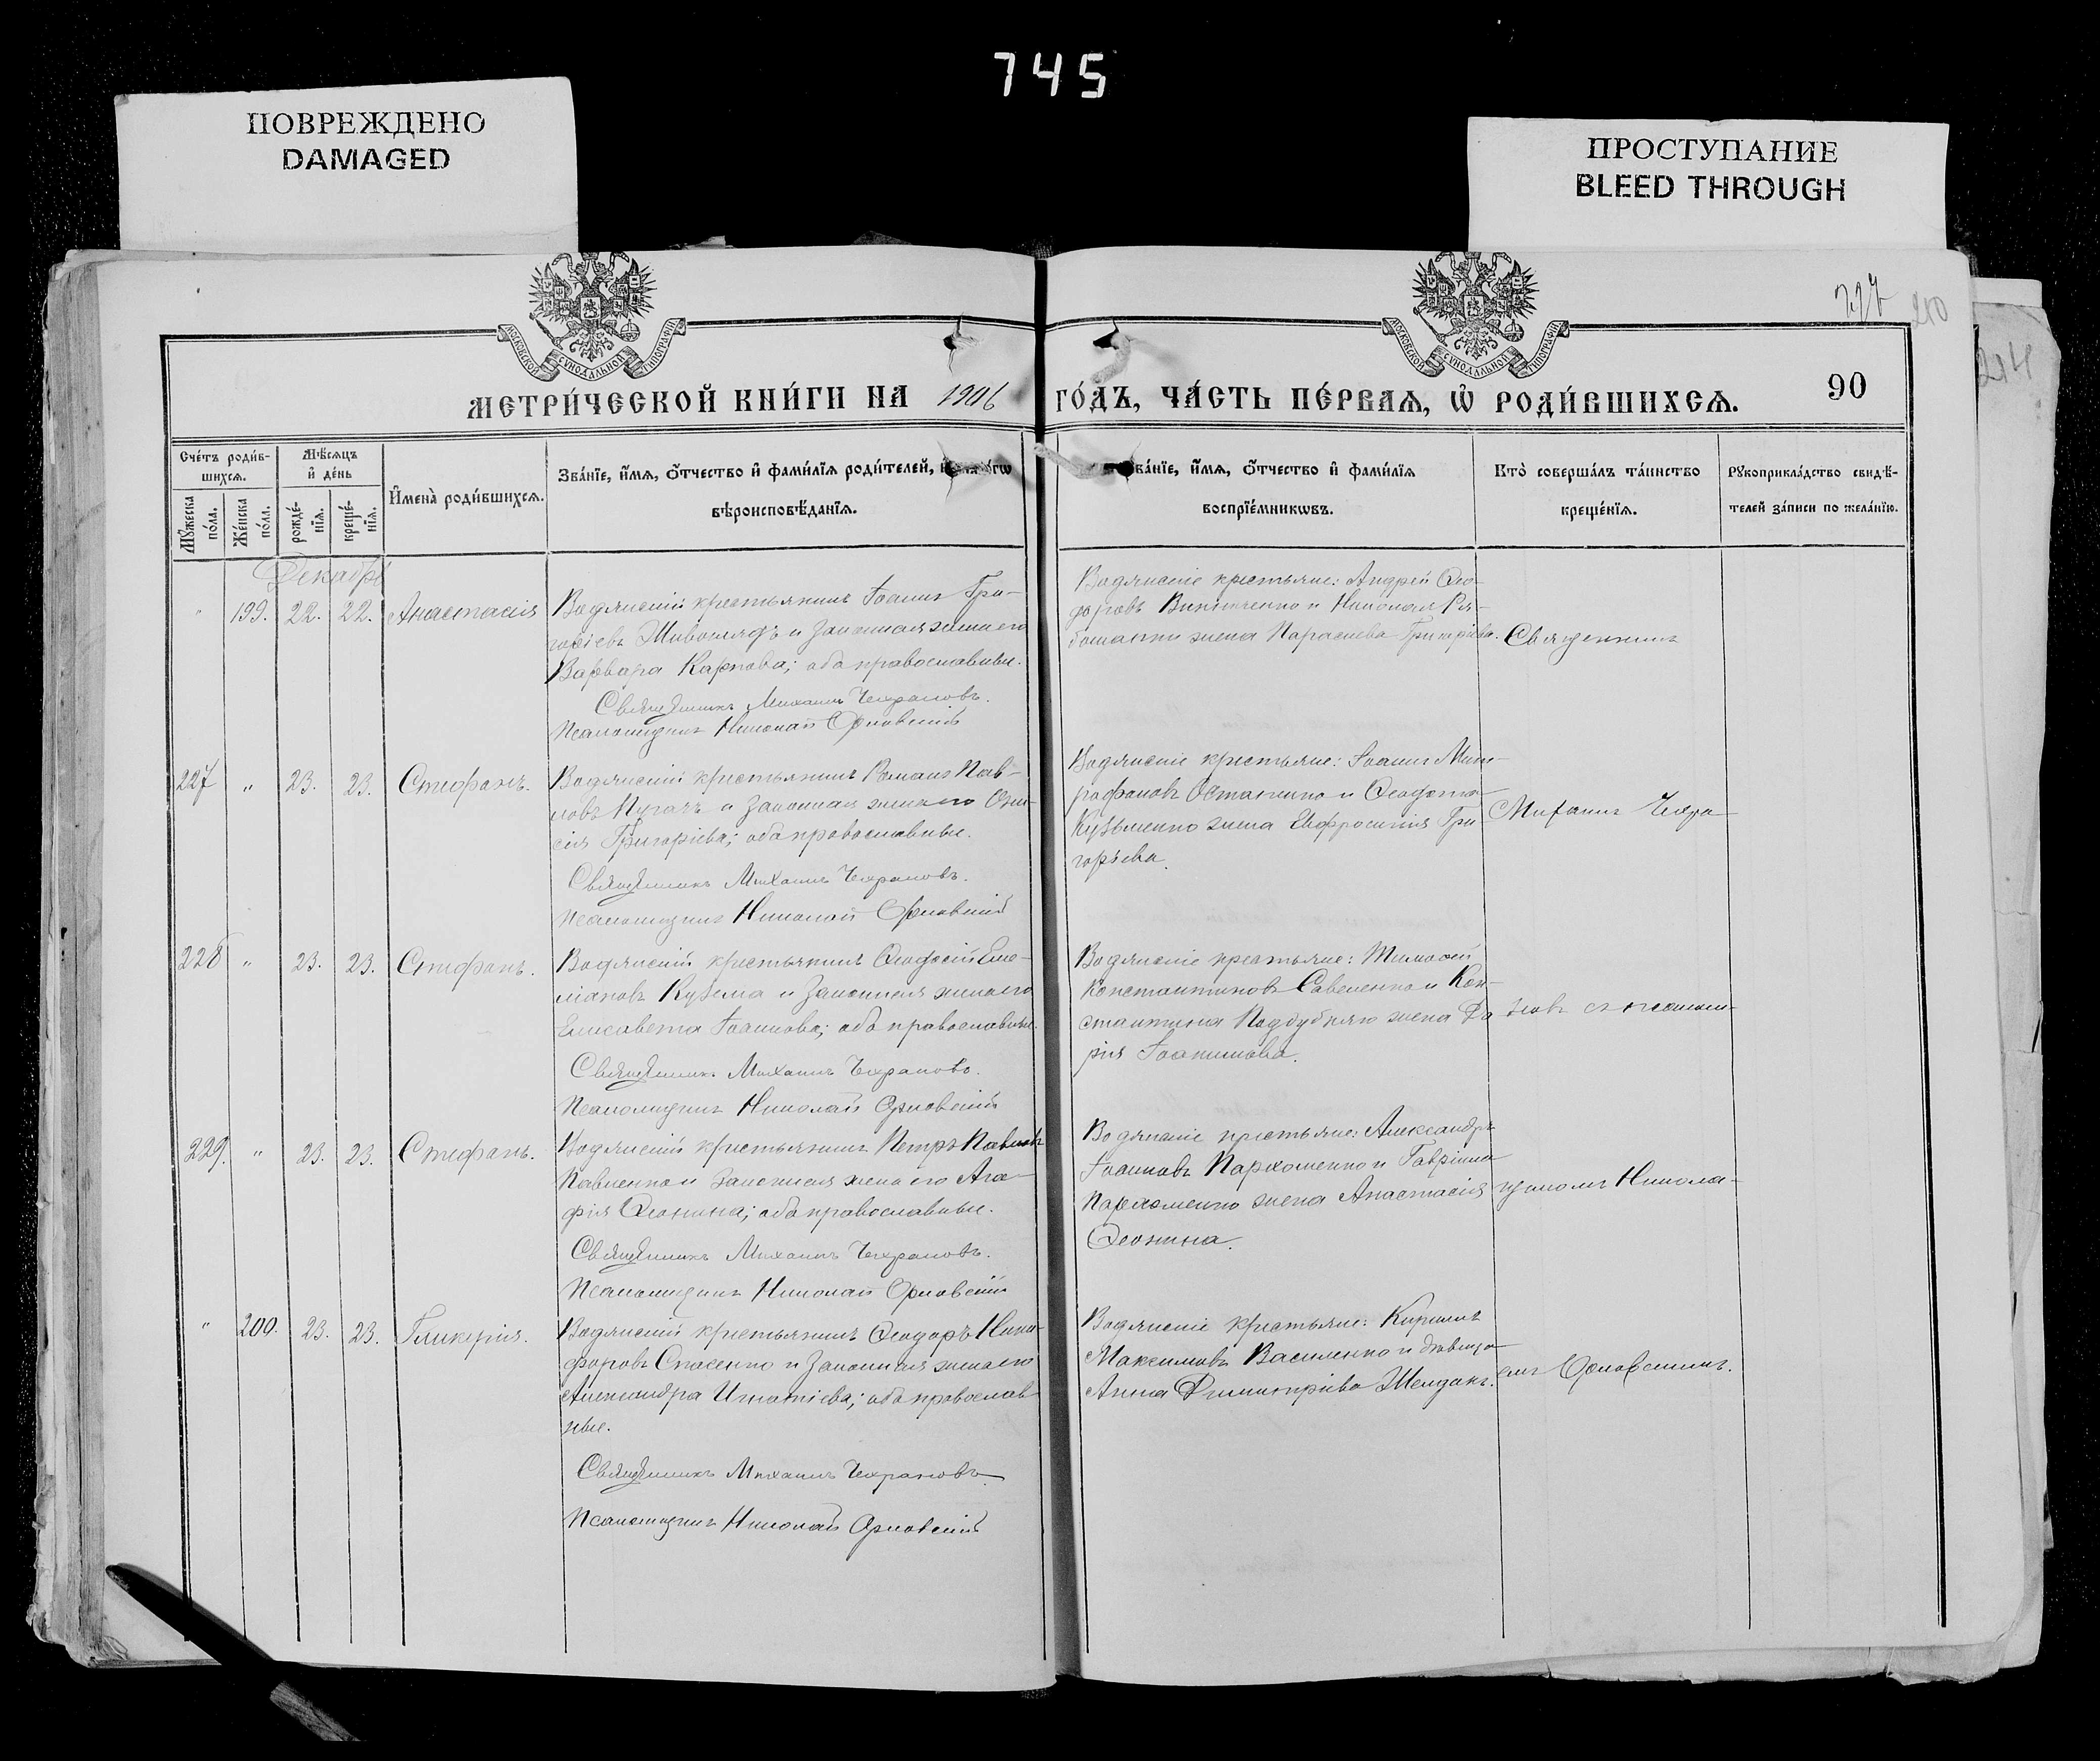 745
ПОВРЕЖДЕНО
DAMAGED
ПРОСТУПАНИЕ
BLEED THROUGH
МОСКОВСКОЙ СѴНОДАЛЬНОЙ ТИПОГРАФІИ
МОСКОВСКОЙ СѴНОДАЛЬНОЙ ТИПОГРАФІИ
210
214
МЕТРИ́ЧЕСКОЙ КНИ́ГИ НА 1906 ГО́ДЪ, ЧА́СТЬ ПЕ́РВАѦ, Ѡ҆ РОДИ́ВШИХСѦ.
90
Сче́тъ роди́в-
шихсѧ.
Мꙋжеска
по́ла.
Же́нска
по́ла.
Мѣ́сѧцъ
и҆ де́нь
рожде́-
нїѧ.
креще́-
нїѧ.
И҆мена̀ роди́вшихсѧ.
Зва́нїе, и҆́мѧ, ѻ҆́тчество и҆ фами́лїѧ роди́телей,
вѣроисповѣ́данїѧ.
ва́нїе, и҆́мѧ, ѻ҆́тчество и҆ фами́лїѧ
воспрїе́мникѡвъ.
Кто̀ соверша́лъ та́инство
креще́нїѧ.
Рꙋкоприкла́дство свидѣ́-
телей за́писи по жела́нїю.
Декабрь
" 199. 22. 22. Анастасія
Водянскій крестьянинъ Іоаннъ Гри-
горіевъ Шивомядъ и законная жена его
Варвара Карпова; оба православные.
Священникъ Михаилъ Чехрановъ.
Псаломщикъ Николай Орловскій
Водянскіе крестьяне: Андрей Ѳео-
доровъ и Николая Ря-
жена Параскева Григоріева.
Священникъ
227 " 23. 23. Стефанъ.
Водянскій крестьянинъ Романъ Пав-
ловъ Пугачъ и законная жена его Ѳеи-
сія Григоріева; оба православные.
Священникъ Михаилъ Чехрановъ.
Псаломщикъ Николай Орловскій
Водянскіе крестьяне: Іоаннъ Мит-
рофановъ Остапенко и Ѳеофана
Кузьменко жена Евфросинія Гри-
горьева.
Михаилъ Чехра-
228 " 23. 23. Стефанъ.
Водянскій крестьянинъ Ѳеодосій Еме-
ліановъ Кузема и законная жена его
Елисавета Іоаннова; оба православные.
Священникъ Михаилъ Чехрановъ.
Псаломщикъ Николай Орловскій
Водянскіе крестьяне: Тимоѳей
Константиновъ Савеленко и Кон-
стантина Поддубняго жена Да-
рія Іоаннова.
новъ съ псалом-
229. " 23. 23. Стефанъ.
Водянскій крестьянинъ Петръ Павловъ
Павленко и законная жена его Ага-
фія Ѳеонина; оба православные.
Священникъ Михаилъ Чехрановъ.
Псаломщикъ Николай Орловскій
Водянскіе крестьяне: Александръ
Іоанновъ Пархоменко и Гавріила
Пархоменко жена Анастасія
Ѳеонина.
щикомъ Никола-
" 200. 23. 23. Гликерія.
Водянскій крестьянинъ Ѳеодоръ Ники-
форовъ Спасенко и законная жена его
Александра Игнатіева; оба православ-
ные.
Священникъ Михаилъ Чехрановъ.
Псаломщикъ Николай Орловскій
Водянскіе крестьяне: Кириллъ
Максимовъ Василенко и дѣвица
Анна Димитріева Шелудакъ.
емъ Орловскимъ.